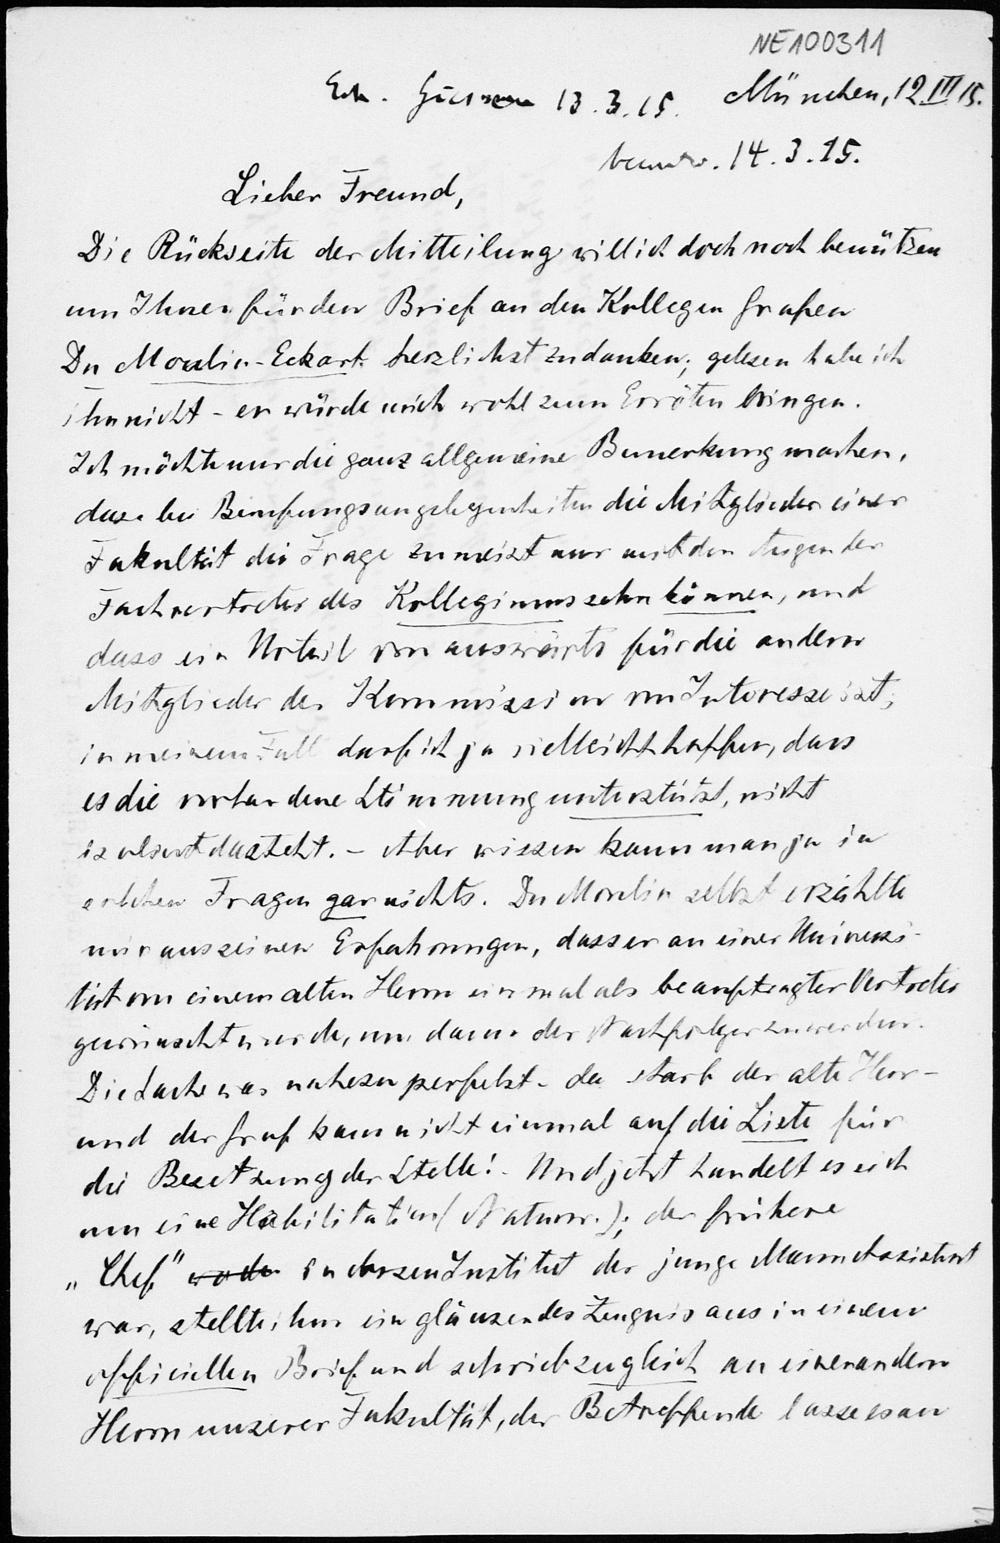 NE100311
München, 12 III 15.
13.3.15.
beantw. 14.3.15.
Lieber Freund,
Die Rückseite der Mitteilung will ich doch noch benützen
um Ihnen für den Brief an den Kollegen Grafen
Du Moulin-Eckart herzlichst zu danken; gelesen habe ich
ihn nicht - er würde mich wohl zum Erröten bringen.
Ich möchte nur die ganz allgemeine Bemerkung machen,
dass bei Berufungsangelegenheiten die Mitglieder einer
Fakultät die Frage zumeist nur mit den Augen der
Fachvertreter des Kollegiums sehn können, und
dass ein Urteil von auswärts für die andern
Mitglieder der Kommission von Interesse ist;
in meinem Fall darf ich ja vielleicht hoffen, dass
es die vorhandene Stimmung unterstützt, nicht
isoliert dasteht. - Aber wissen kann man ja in
solchen Fragen gar nichts. Du Moulin selbst erzählte
mir aus seinen Erfahrungen, dass er an einer Universi-
tät von einem alten Herrn einmal als beauftragter Vertreter
gewünscht wurde, um dann der Nachfolger zu werden.
Die Sache war nahezu perfekt - da starb der alte Herr -
und der Graf kam nicht einmal auf die Liste für
die Besetzung der Stelle! - Und jetzt handelt es sich
um eine Habilitation (Naturw.); der frühere
„Chef" in dessen Institut der junge Mann Assistent
war, stellte ihm ein glänzendes Zeugnis aus in einem
officiellen Brief und schrieb zugleich an einen andern
Herrn unserer Fakultät, der Betreffende lasse es an